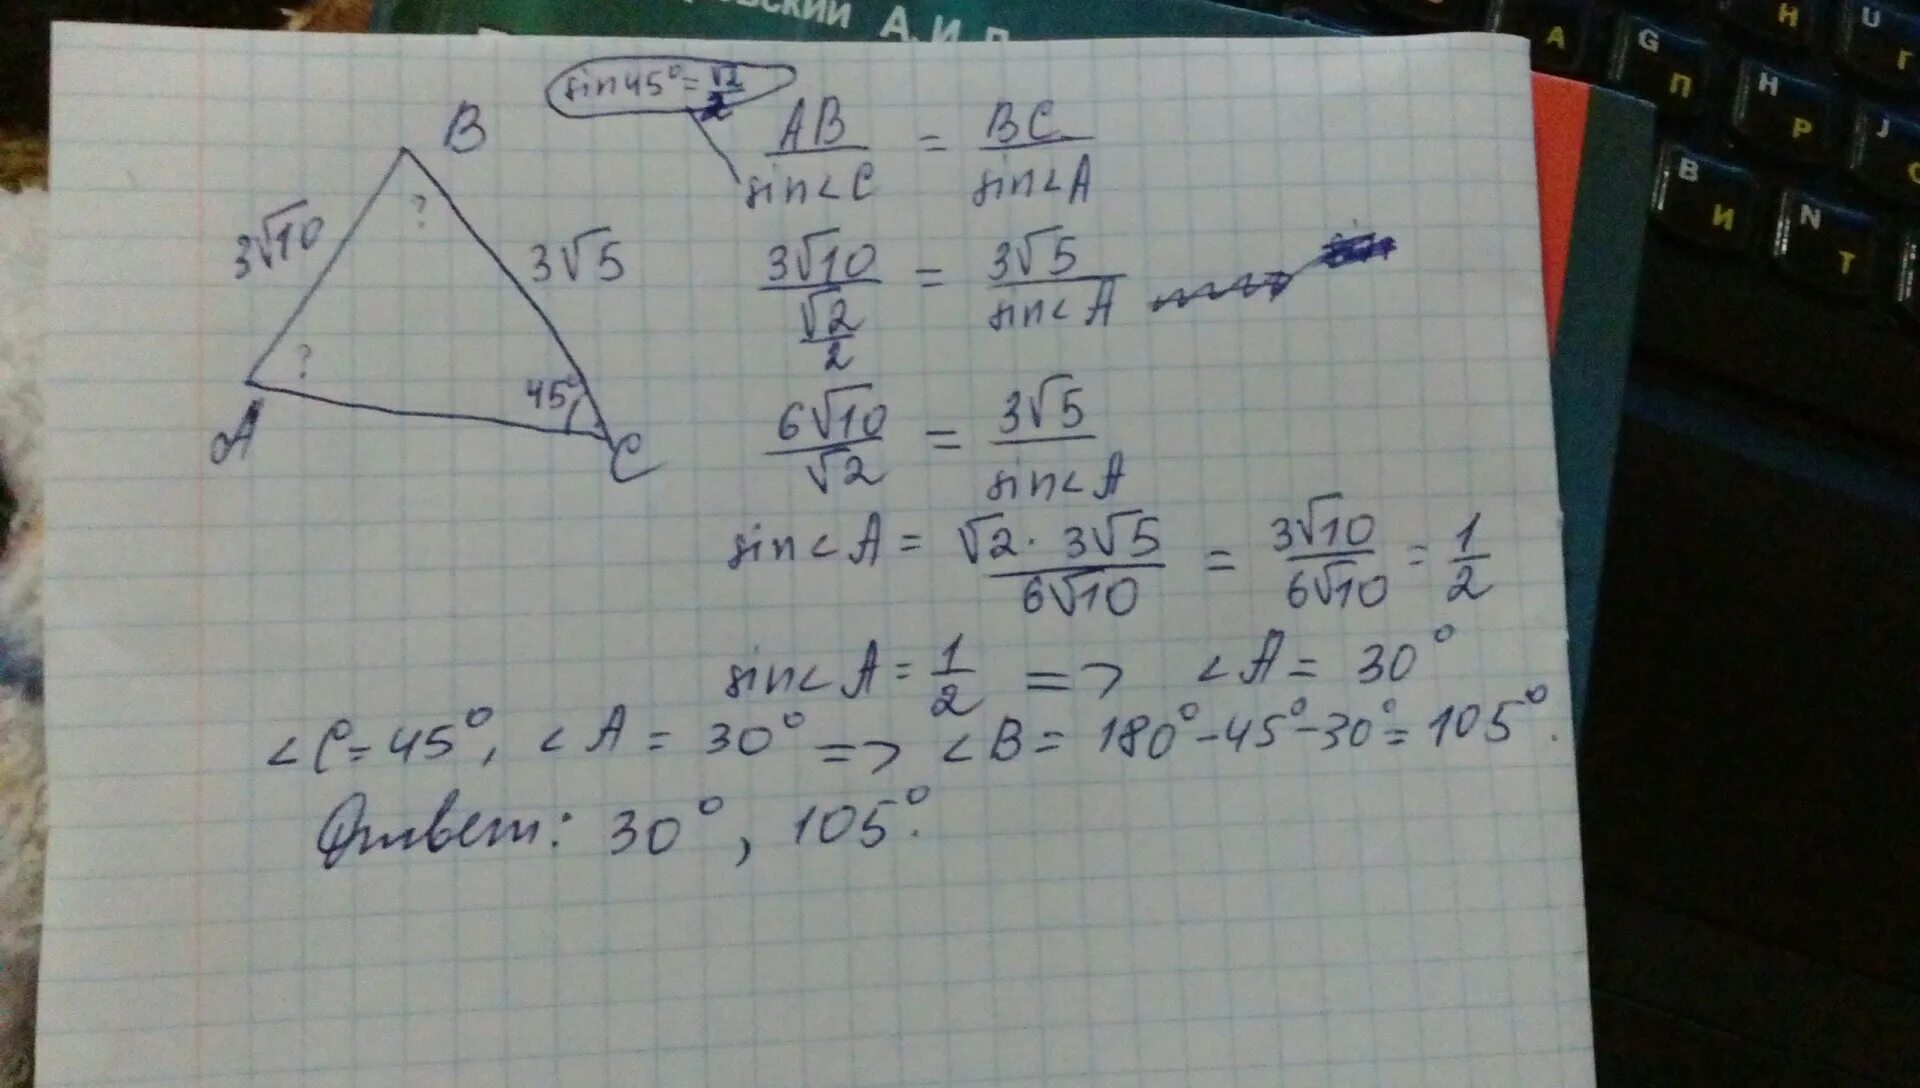 вский А. И. П
sin45°=√2/2
B
AB/sin∠C = BC/sin∠A
?
3√10
3√5
3√10/(√2/2) = 3√5/sin∠A
?
45°
A
C
6√10/√2 = 3√5/sin∠A
sin∠A = √2·3√5/6√10 = 3√10/6√10 = 1/2
sin∠A = 1/2 => ∠A = 30°
∠C=45°, ∠A = 30° => ∠B = 180°-45°-30°= 105°.
Ответ: 30°, 105°.
A
G П
H Р
Н
U Г
J
B И
N Т